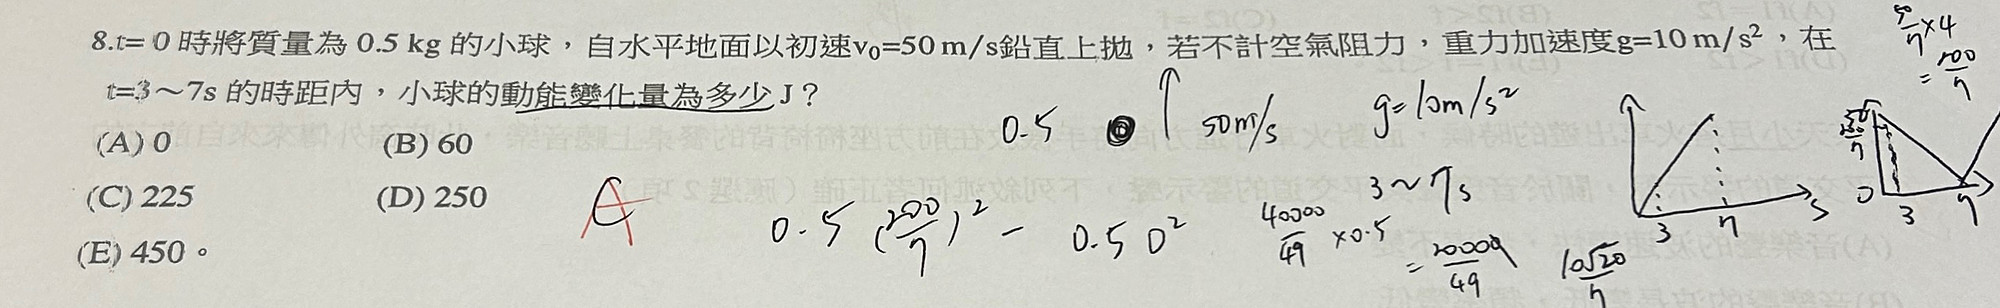 8.t= 0 時將質量為 0.5 kg 的小球，自水平地面以初速v₀=50 m/s鉛直上拋，若不計空氣阻力，重力加速度g=10 m/s²，在
t=3～7s 的時距內，小球的動能變化量為多少 J？
(A) 0
(B) 60
(C) 225
(D) 250
(E) 450。
A
0.5
50m/s
g=10m/s²
3～7s
0.5 (200/7)² - 0.5 0²
40000/49 ×0.5
= 20000/49
10√20/7
3
7
s
50/7 ×4
= 200/7
0
3
7